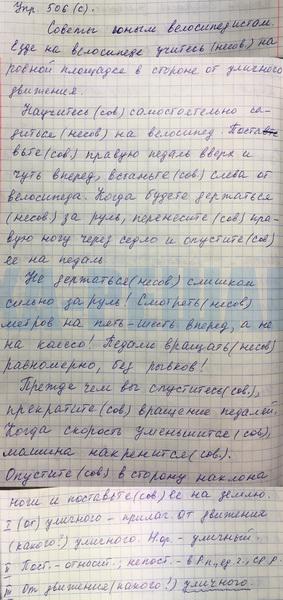 Упр. 506 (с).
Советы юным велосипедистам.
Езде на велосипеде учитесь (несов) на
ровной площадке в стороне от уличного
движения.
Научитесь (сов) самостоятельно са-
дитьсе (несов) на велосипед Поста
вьте (сов) правую педаль вверх и
чуть вперед, встаньте (сов) слева от
велосипеда. Когда будете держаться
(несов) за руль, перенесите (сов) пра-
вую ногу через седло и опустите (сов)
ее на педаль
Не держаться (несов) слишком
сильно за руль! Смотреть (несов)
метров на пять-шесть вперед, а не
на колесо! Педали вращать (несов)
равномерно, без рывков!
Прежде чем вы спуститесь (сов.),
прекратите (сов) вращение педалей.
Когда скорость уменьшится (сов),
машина накренится (сов).
Опустите (сов) в сторону наклона
ноги и поставьте (сов) ее на землю.
I (от) уличного - прилаг. От движения
(какого?) уличного. Н.ф. - уличный.
II Пост. - относит., непост. - в Р.п., ед.ч., ср.р.
III От движения (какого?) уличного.